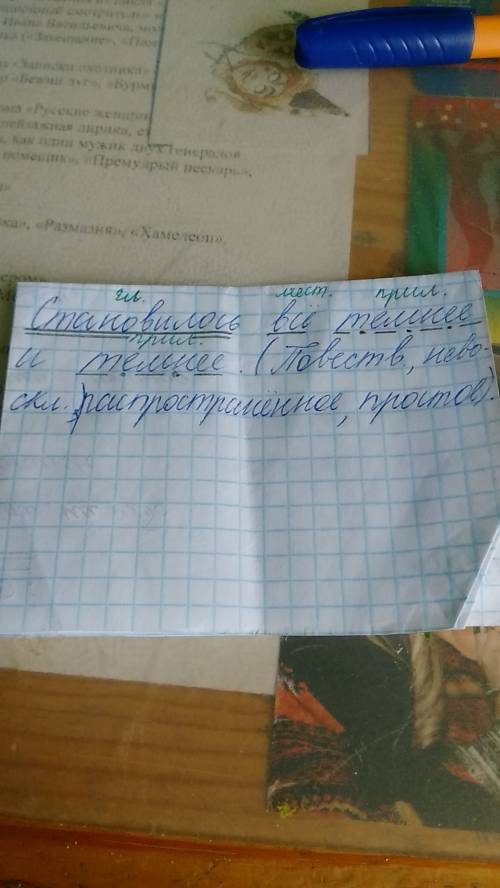 ционный смотритель»
Ивана Васильевича, мол
ка («Завещание»,
«Записки охотника»
«Бежин луг», «Бурм
«Русские женщин
пейзажная лирика,
как один мужик двух генералов
помещик», «Премудрый пескарь»,
«Размазня», «Хамелеон»,
гл. мест. прил.
Становилось всё темнее
прил.
и темнее. (Повеств., нево-
скл., распространённое, простое).